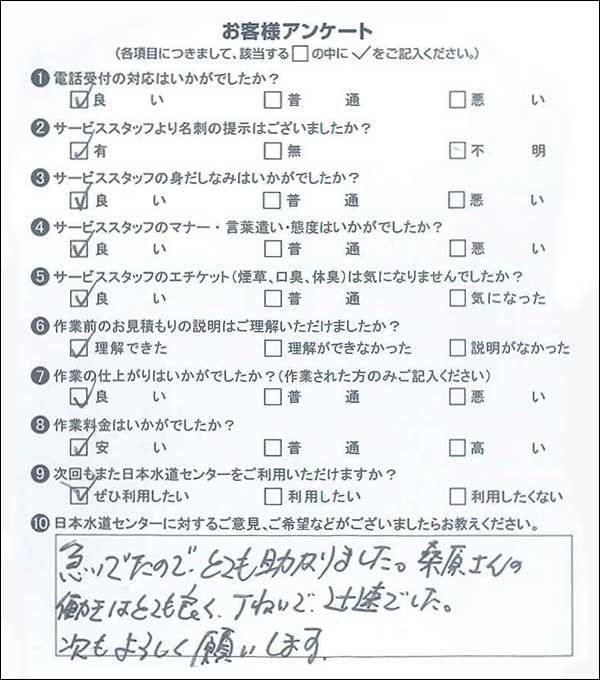 お客様アンケート
(各項目につきまして、該当する□の中に✓をご記入ください。)
❶ 電話受付の対応はいかがでしたか？
☑良い □普通 □悪い
❷ サービススタッフより名刺の提示はございましたか？
☑有 □無 □不明
❸ サービススタッフの身だしなみはいかがでしたか？
☑良い □普通 □悪い
❹ サービススタッフのマナー・言葉遣い・態度はいかがでしたか？
☑良い □普通 □悪い
❺ サービススタッフのエチケット(煙草、口臭、体臭)は気になりませんでしたか？
☑良い □普通 □気になった
❻ 作業前のお見積もりの説明はご理解いただけましたか？
☑理解できた □理解ができなかった □説明がなかった
❼ 作業の仕上がりはいかがでしたか？(作業された方のみご記入ください)
☑良い □普通 □悪い
❽ 作業料金はいかがでしたか？
☑安い □普通 □高い
❾ 次回もまた日本水道センターをご利用いただけますか？
☑ぜひ利用したい □利用したい □利用したくない
❿ 日本水道センターに対するご意見、ご希望などがございましたらお教えください。
急いでたので、とても助かりました。桑原さんの
はとても良く、丁ねいで、迅速でした。
次もよろしく願いします。